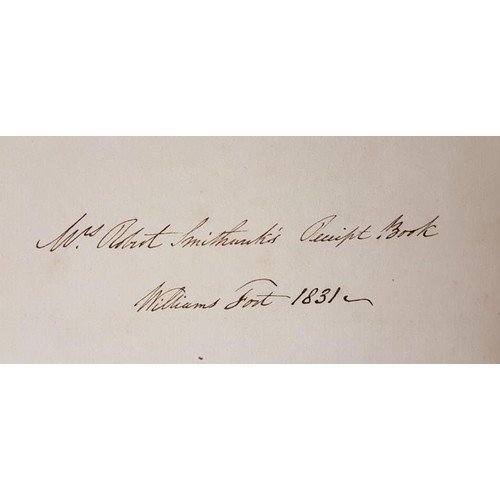 Mrs. Robert Smithwick's Receipt Book
Williams Fort 1831